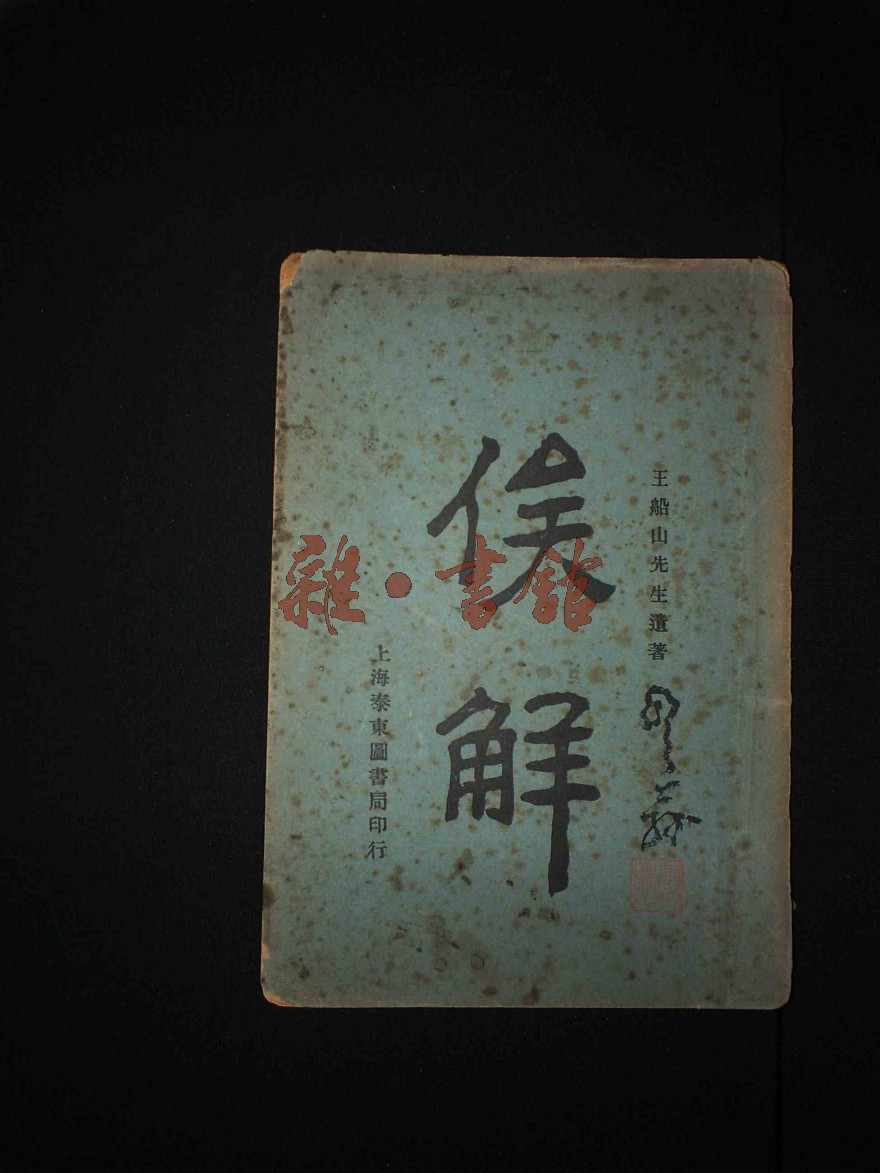 王船山先生遺著
俟解
上海泰東圖書局印行
雜·書館